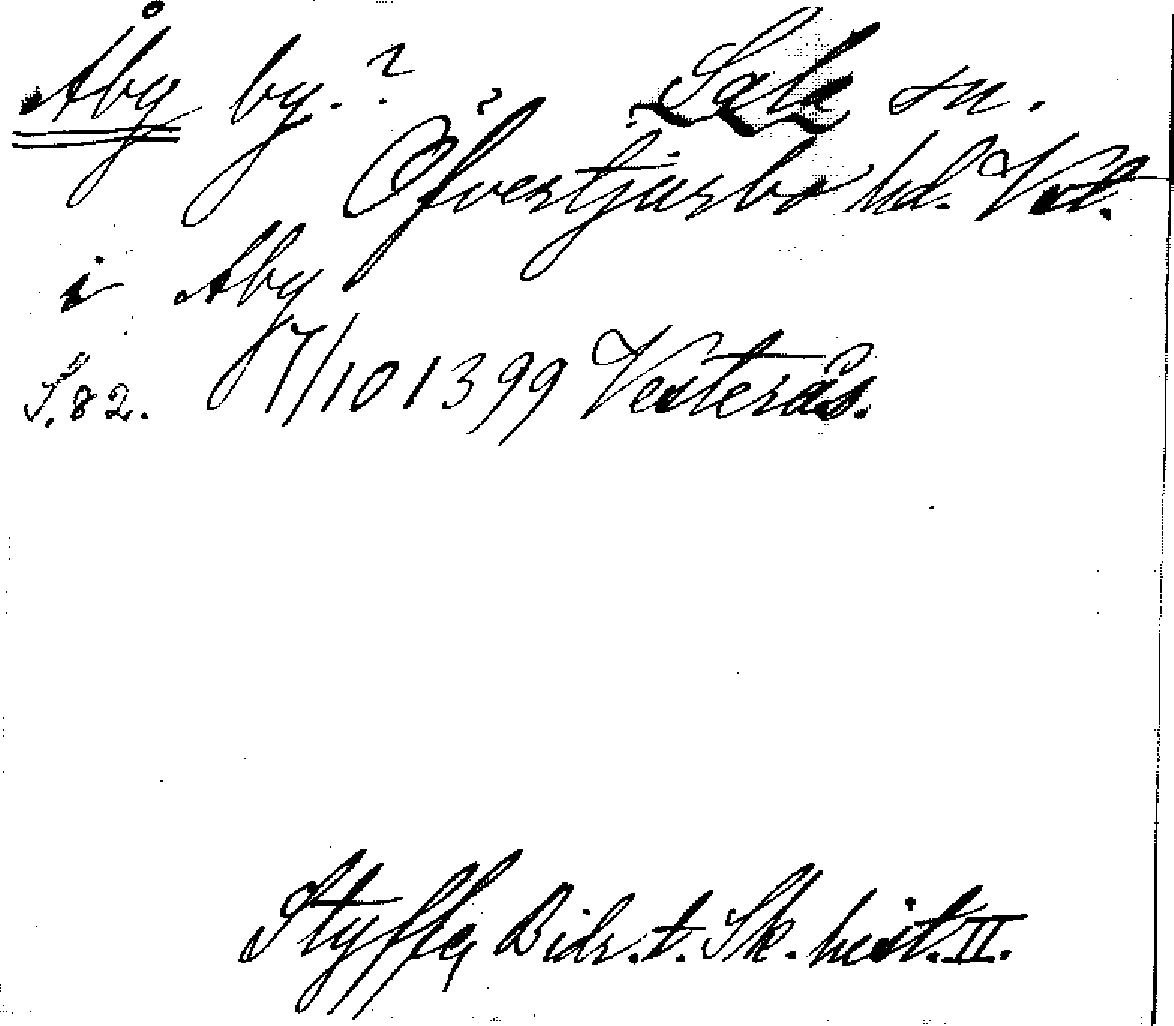 Åby by.? Sala sn.
Öfvertjurbo hd. Vstl.
i Aby
S. 82. 17/10 1399 Vesterås.
Styffe, Bidr. t. Sk. hist. II.